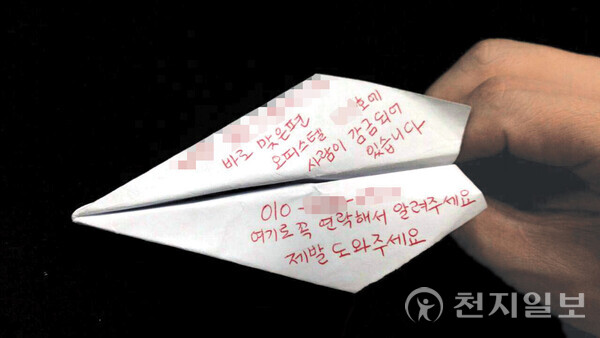 바로 맞은편
오피스텔 호에
사람이 감금되어
있습니다
010- -
여기로 꼭 연락해서 알려주세요
제발 도와주세요
천지일보